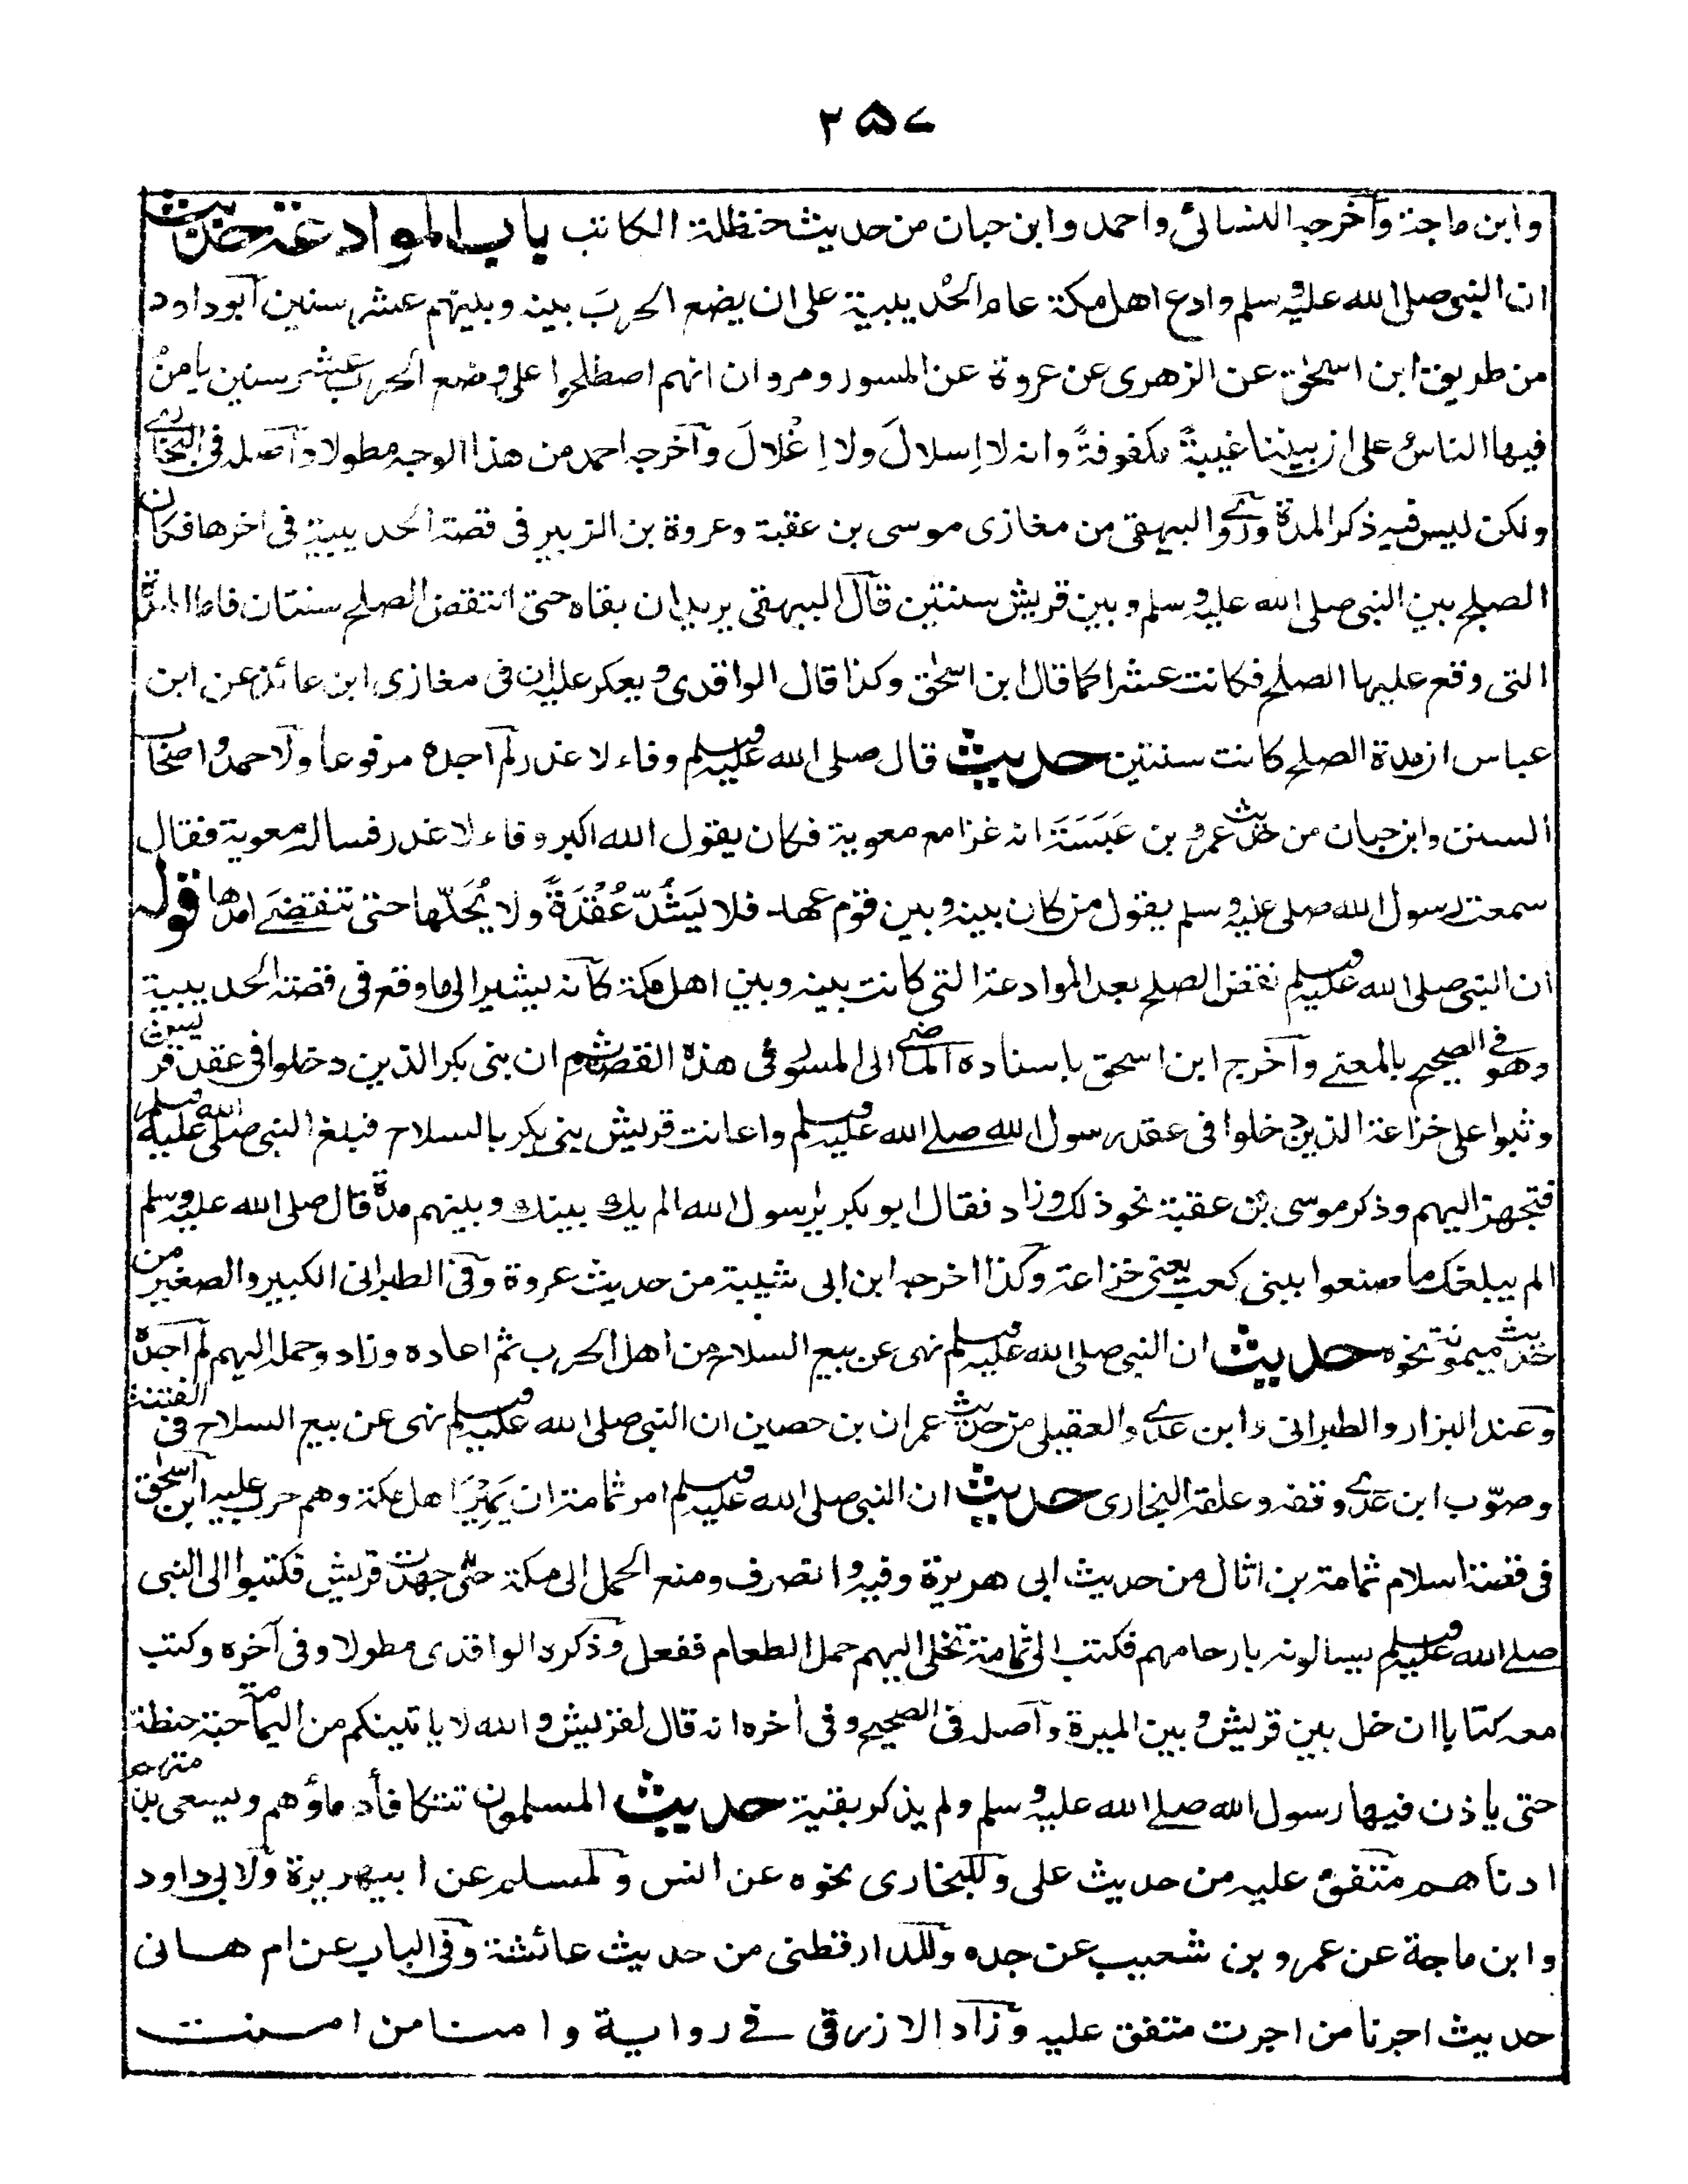 ۲۵۷
وابن ماجة وأخرجه النسائى واحمد وابن حبان من حديث حنظلة الكاتب باب الموادعة حديث
ان النبى صلى الله عليه وسلم وادع اهل مكة عام الحُديبية على ان يضع الحربَ بينه وبينهم عشر سنين آبو داود
من طريق ابن اسحٰق عن الزهرى عن عروة عن المسور ومروان انهم اصطلحوا على وضع الحرب عشر سنين يامنُ
فيها الناسُ على ان بيننا عَيبةً مكفوفةً وانه لا اِسلالَ ولا اِغْلالَ وآخرجه احمد من هذا الوجه مطولا وآصله فى البخارى
ولكن ليس فيه ذكر المدة وروى البيهقى من مغازى موسى بن عقبة وعروة بن الزبير فى قصة الحديبية فى اخرها فكان
الصلح بين النبى صلى الله عليه وسلم وبين قريش سنتين قآل البيهقى يريد ان بقاه حتى انتقض الصلح سنتان فاما المدة
التى وقع عليها الصلح فكانت عشرا كما قال ابن اسحٰق وكذا قال الواقدى ويعكر عليه ان فى مغازى ابن عائذ عن ابن
عباس ان مدة الصلح كانت سنتين حديث قال صلى الله عليه وسلم وفاء لا غدر لم آجده مرفوعا ولآحمد واصحاب
السنن وابن حبان من حديث عمرو بن عَبَسَةَ انه غزا مع معوية فكان يقول الله اكبر وفاء لا غدر فساله معوية فقال
سمعت رسول الله صلى عليه وسلم يقول من كان بينه وبين قوم عهد فلا يَشُدّ عُقْدَةً ولا يُحَلّها حتى تنقضَے امدها قوله
ان النبى صلى الله عليه وسلم نقض الصلح بعد الموادعة التى كانت بينه وبين اهل مكة كآنه يشير الى ما وقع فى قصة الحديبية
وهو فى الصحيح بالمعنے وآخرج ابن اسحق باسناده الماضے الى المسور فى هذه القصة ثم ان بنى بكر الذين دخلوا فى عقد قريش
وثبوا على خزاعة الذين دخلوا فى عقد رسول الله صلے الله عليه وسلم واعانت قريش بنى بكر بالسلاح فبلغ النبى صلى الله عليه وسلم
فتجهز اليهم وذكر موسى بن عقبة نحو ذلك وزاد فقال ابو بكر يٰرسول الله الم يك بينك وبينهم مدة قال صلى الله عليه وسلم
الم يبلغك ما صنعوا ببنى كعب يعنى خزاعة وكذا اخرجه ابن ابى شيبة من حديث عروة وفى الطبرانى الكبير والصغير من
حديث ميمونة نحوه حديث ان النبى صلى الله عليه وسلم نهى عن بيع السلاح من اهل الحرب ثم اعاده وزاد وحمله اليهم لم آجده
وعند البزار والطبرانى وابن عدے والعقيلى من حديث عمران بن حصين ان النبى صلى الله عليه وسلم نهى عن بيع السلاح فى الفتنة
وصوّب ابن عدے وقفه وعلقه البخارى حديث ان النبى صلى الله عليه وسلم امر ثمامة ان يَمِيْرَ اهل مكة وهم حرب عليه ابن اسحٰق
فى قصة اسلام ثمامة بن اثال من حديث ابى هريرة وفيه وانصرف ومنع الحمل الى مكة حتى جهدت قريش فكتبوا الى النبى
صلے الله عليه وسلم يسالونه بارحامهم فكتب الى ثمامة تخلى اليهم حمل الطعام ففعل وذكره الواقدى مطولا وفى آخره وكتب
معه كتابا ان خل بين قريش وبين الميرة وآصله فى الصحيح وفى اخره انه قال لقريش والله لا ياتينكم من اليمامة حبة حنطة
حتى ياذن فيها رسول الله صلے الله عليه وسلم ولم يذكر بقية حديث المسلمون تتكافأد ماؤهم ويسعى بذمتهم
ادناهم متفق عليه من حديث على وللبخارى نحوه عن انس ولمسلم عن ابيهريرة ولابى داود
وابن ماجة عن عمرو بن شعيب عن جده وللدارقطنى من حديث عائشة وفى الباب عن ام هانى
حديث اجرنا من اجرت متفق عليه وزاد الازرقى فے رواية وامنا من امنت